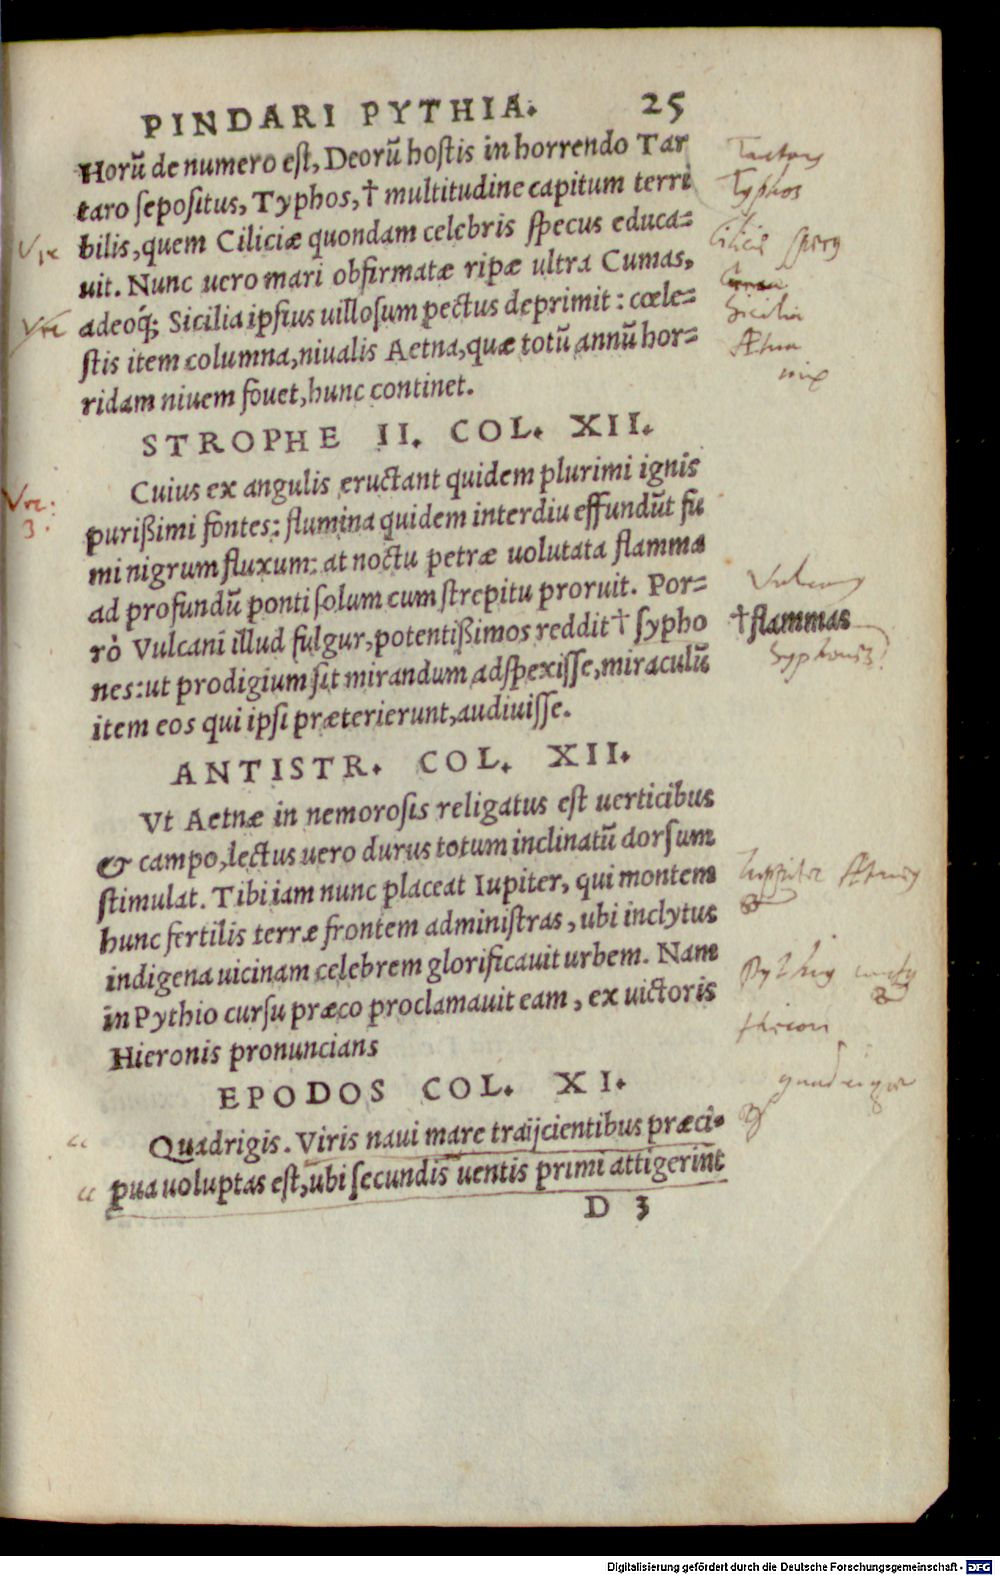 PINDARI PYTHIA. 25
Horũ de numero est, Deorũ hostis in horrendo Tar
taro sepositus, Typhos, † multitudine capitum terri
bilis, quem Ciliciæ quondam celebris specus educa-
uit. Nunc uero mari obfirmatæ ripæ ultra Cumas,
adeoq́; Sicilia ipsius uillosum pectus deprimit: cœle-
stis item columna, niualis Aetna, quæ totũ annũ hor-
ridam niuem fouet, hunc continet.
Typhos
Sicilia
Ætna
STROPHE II. COL. XII.
Cuius ex angulis eructant quidem plurimi ignis
purißimi fontes: flumina quidem interdiu effundũt fu
mi nigrum fluxum: at noctu petræ uolutata flamma
ad profundũ ponti solum cum strepitu proruit. Por-
rò Vulcani illud fulgur, potentißimos reddit † sypho
nes: ut prodigium sit mirandum adspexisse, miraculũ
item eos qui ipsi præterierunt, audiuisse.
3.
† flammas
ANTISTR. COL. XII.
Vt Aetnæ in nemorosis religatus est uerticibus
& campo, lectus uero durus totum inclinatũ dorsum
stimulat. Tibi iam nunc placeat Iupiter, qui montem
hunc fertilis terræ frontem administras, ubi inclytus
indigena uicinam celebrem glorificauit urbem. Nam
in Pythio cursu præco proclamauit eam, ex uictoris
Hieronis pronuncians
Iuppiter
EPODOS COL. XI.
Quadrigis. Viris naui mare traijcientibus præci-
pua uoluptas est, ubi secundis uentis primi attigerint
D 3
Digitalisierung gefördert durch die Deutsche Forschungsgemeinschaft - DFG